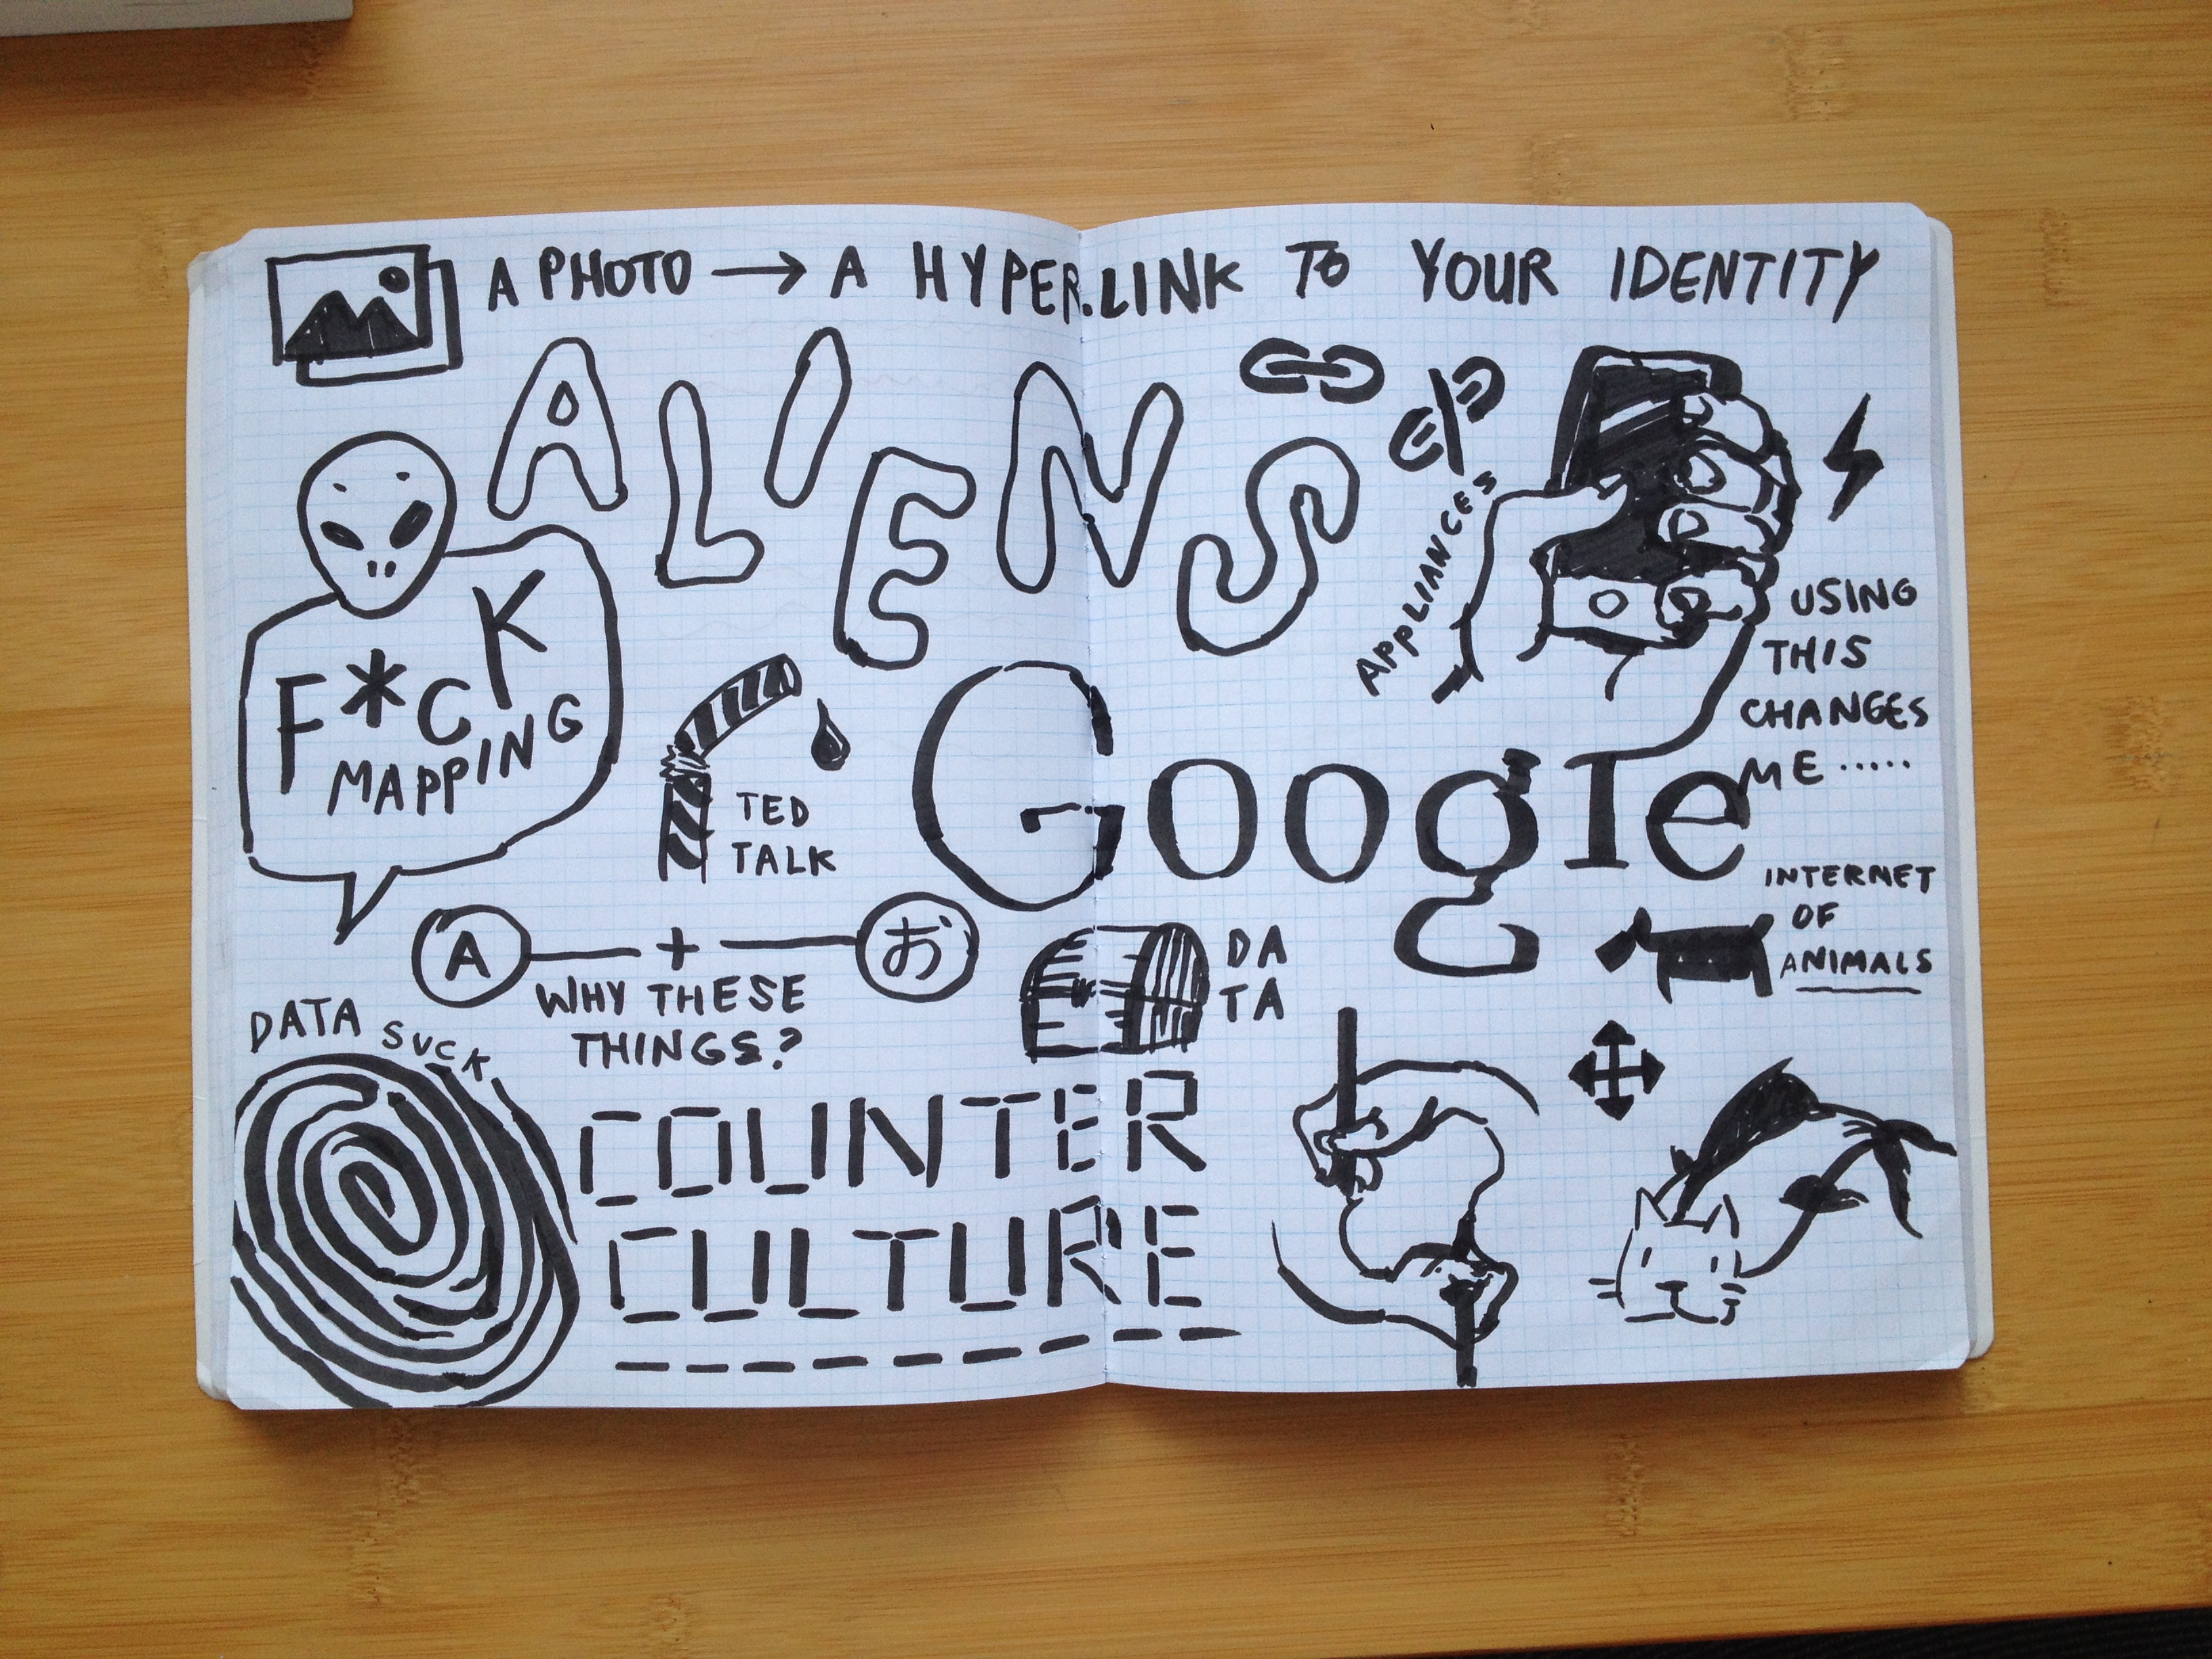 A PHOTO → A HYPER.LINK TO YOUR IDENTITY
ALIENS
APPLIANCES
F*CK
MAPPING
USING
THIS
CHANGES
ME .....
TED
TALK
Google
INTERNET
OF
ANIMALS
A + お
WHY THESE
THINGS?
DA
TA
DATA SUCK
COUNTER
CULTURE